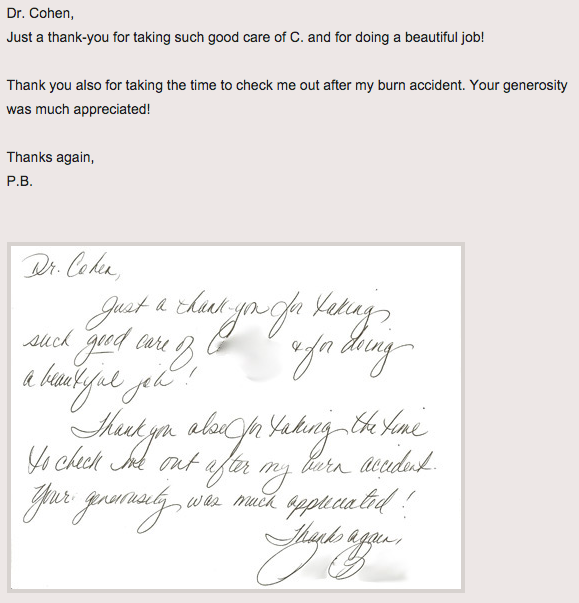 Dr. Cohen,
Just a thank-you for taking such good care of C. and for doing a beautiful job!
Thank you also for taking the time to check me out after my burn accident. Your generosity
was much appreciated!
Thanks again,
P.B.
Dr. Cohen,
Just a thank-you for taking
such good care of C
& for doing
a beautiful job!
Thank you also for taking the time
to check me out after my burn accident.
Your generousity was much appreciated!
Thanks again,
P B